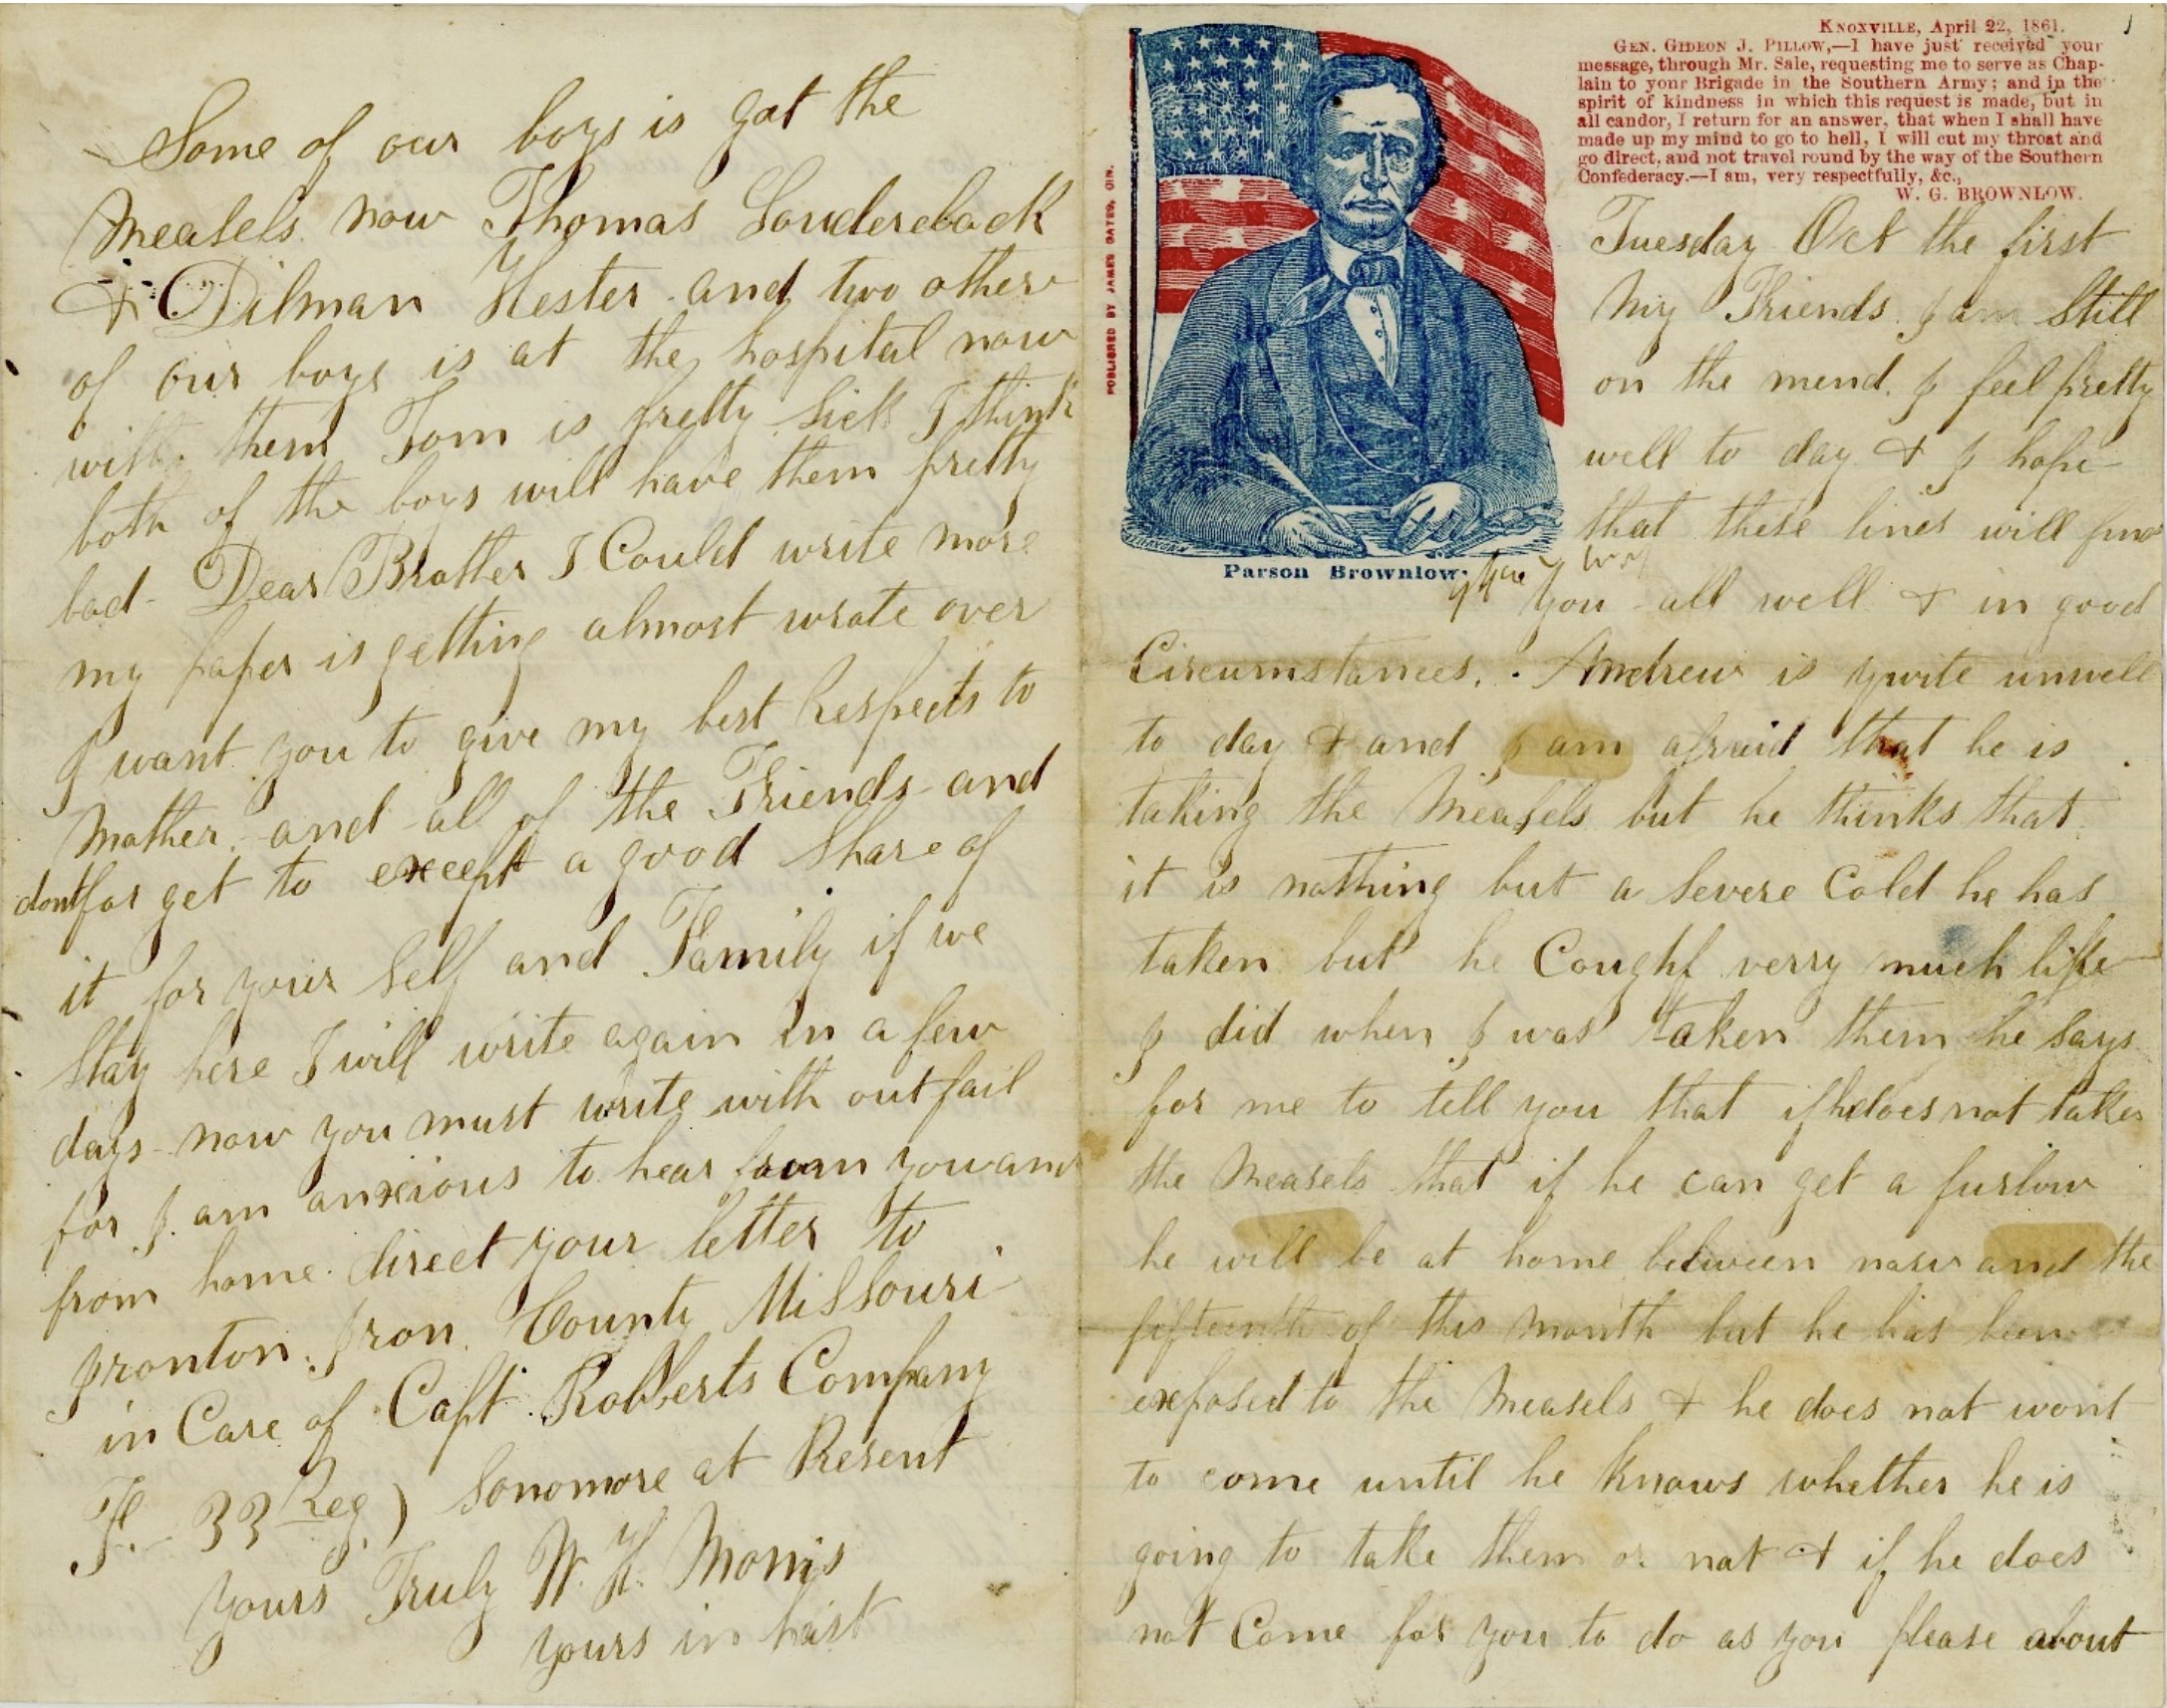 Some of our boys is got the
Measels now Thomas Loudereback
& Dilman Hester and two others
of our boys is at the hospital now
with them Tom is pretty sick I think
both of the boys will have them pretty
bad Dear Brother I Could write more
my paper is getting almost wrote over
I want you to give my best Respects to
Mother and all of the Friends and
dont for get to except a good share of
it for your self and Family if we
stay here I will write again in a few
days now you must write with out fail
for I am anxious to hear from you and
from home direct your letter to
Ironton Iron County Missouri
in Care of Capt Robberts Company
F. 33 Reg) So no more at Present
Yours Truly W. H. Morris
yours in haist
KNOXVILLE, April 22, 1861.
GEN. GIDEON J. PILLOW,—I have just received your
message, through Mr. Sale, requesting me to serve as Chap-
lain to yonr Brigade in the Southern Army; and in the
spirit of kindness in which this request is made, but in
all candor, I return for an answer, that when I shall have
made up my mind to go to hell, I will cut my throat and
go direct, and not travel round by the way of the Southern
Confederacy.—I am, very respectfully, &c.,
W. G. BROWNLOW.
PUBLISHED BY JAMES GATES, CIN.
Parson Brownlow.
Tuesday Oct the first
My Friends I am Still
on the mend. I feel pretty
well to day & I hope
that these lines will find
you all well & in good
Circumstances. Andrew is quite unwell
to day & and I am afraid that he is
taking the Measels but he thinks that
it is nothing but a severe Cold he has
taken but he Coughf verry much like
I did when I was taken them he says
for me to tell you that if he does not takes
the Measels that if he can get a furlow
he will be at home between now and the
fifteenth of this month but he has been
exposed to the Measels & he does not wont
to come until he knows whether he is
going to take them or not & if he does
not Come for you to do as you please about